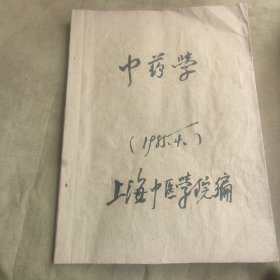 中药学
(1985.4.)
上海中医学院编